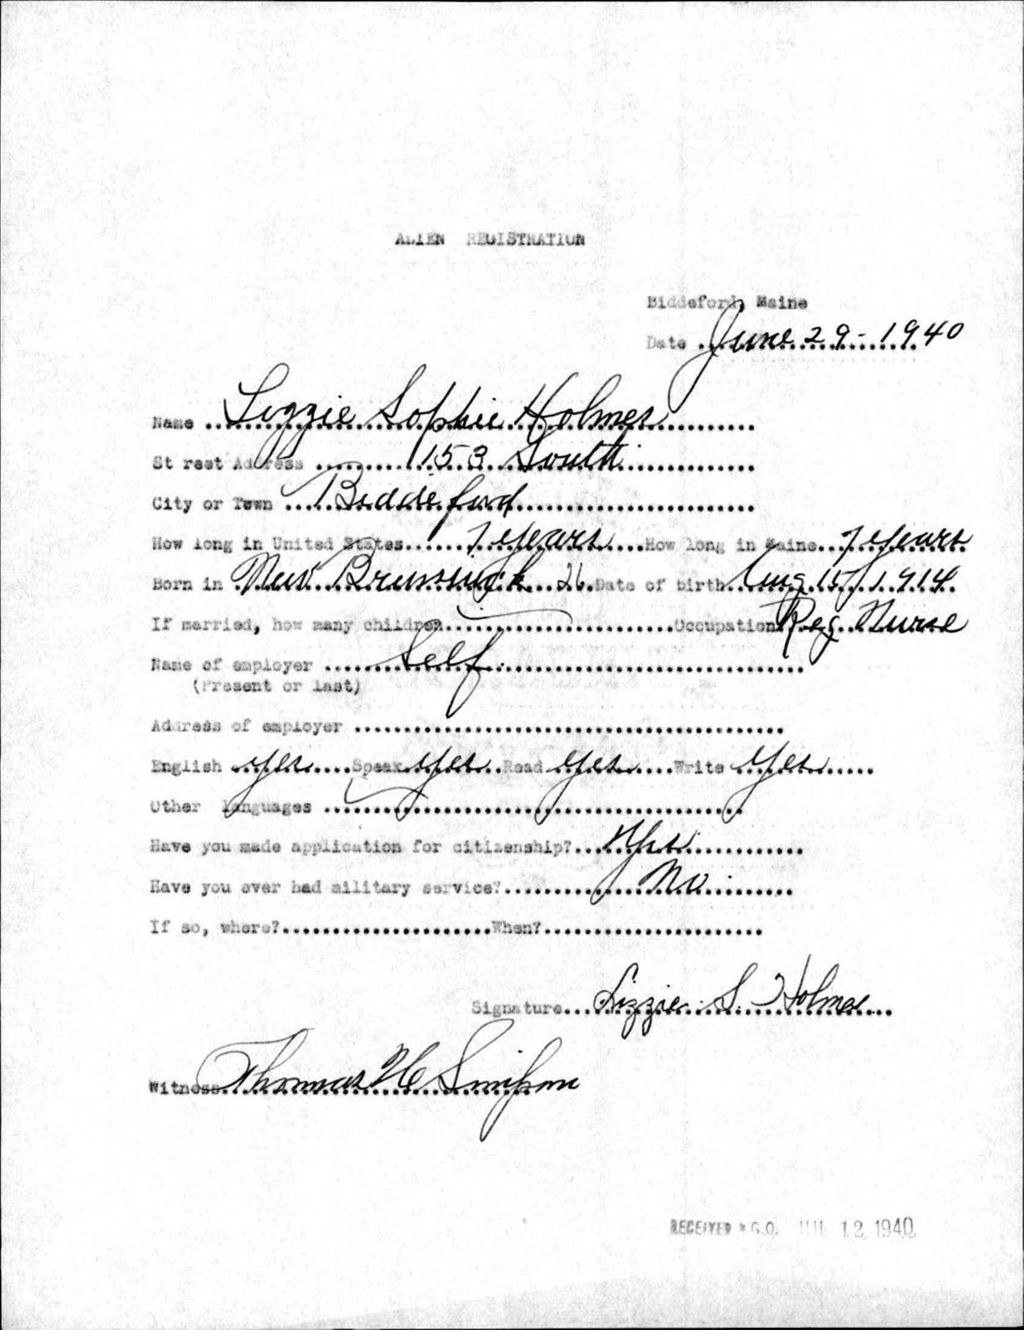 ALIEN REGISTRATION
Biddeford, Maine
Date June 29-1940
Name Lizzie Sophie Holmes
Street Address 153 South
City or Town Biddeford
How long in United States 7 years How long in Maine 7 years
Born in New Brunswick 26 Date of birth Aug 15, 1914
If married, how many children Occupation Reg Nurse
Name of employer Self
(Present or last)
Address of employer
English yes Speak yes Read yes Write yes
Other languages
Have you made application for citizenship? Yes
Have you ever had military service? No
If so, where? When?
Signature Lizzie S. Holmes
Witness Thomas H Simpson
RECEIVED A.G.O. JUL 12 1940